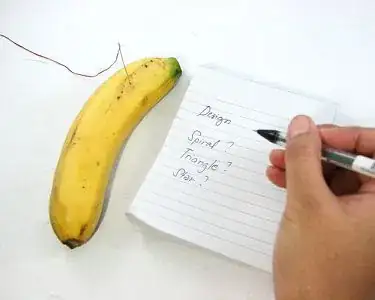 Design
Spiral ?
Triangle ?
Star ?